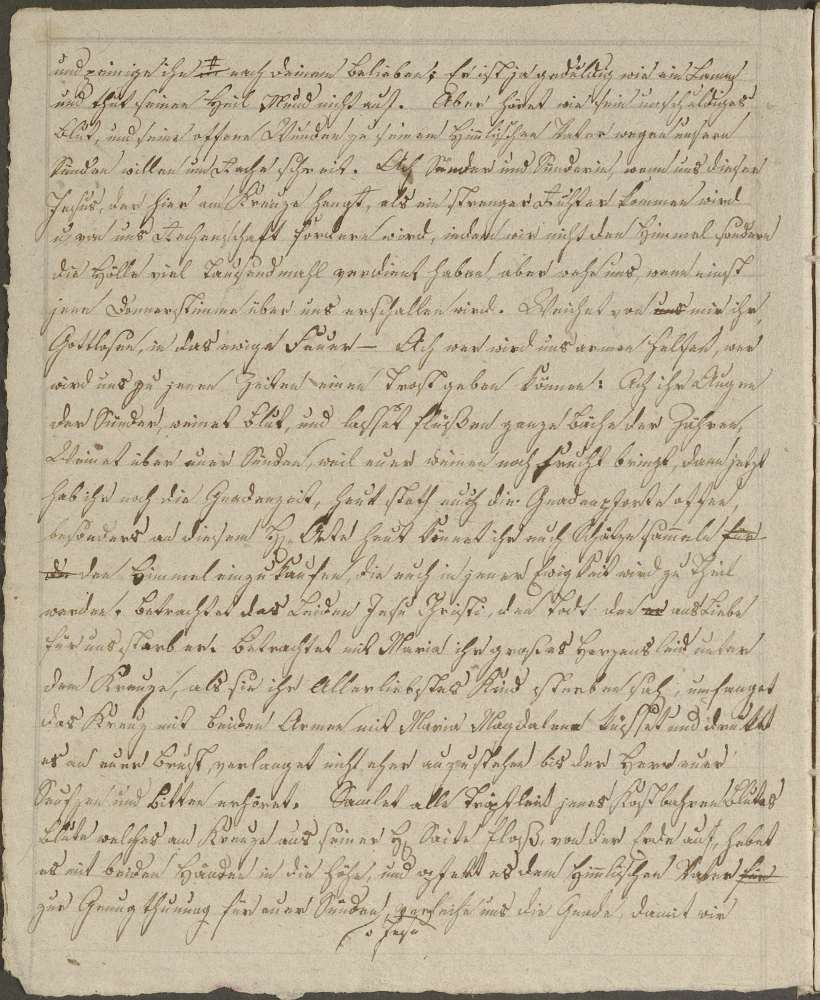 und peinige ihn nach deinem belieben; Er ist ja geduldig wie ein Lamm
und thut seinen Heil. Mund nicht auf. Aber höret wie sein unschuldiges
Blut, und seine offene Wunden zu seinem Himmlischen Vater wegen unsern
Sünden willen um Rache schreit. Ach Sünder und Sünderin, wenn uns dieser
Jesus, der hier am Kreuze hangt, als ein strenger Richter kommen wird
u. von uns Rechenschaft fordern wird, indem wir nicht den Himmel sondern
die Hölle viel Tausendmahl verdient haben, aber wehe uns, wenn einst
jene Donnerstimme über uns erschallen wird. Weichet von uns mir ihr
Gottlosen, in das ewige Feuer — Ach wer wird uns armen helfen, wer
wird uns zu jenen Zeiten einen Trost geben können: Ach ihr Augen
der Sünder, weinet Blut, und lasset flüßen ganze Bäche der Zähren,
Weinet über euer Sünden, weil euer weinen noch Frucht bringt, dann jetzt
hab ihr noch die Gnadenzeit, heut steth euch die Gnadenpforte offen,
besonders an diesem H. Orte heut könnet ihr euch Schätze sammeln für
den Himmel einzukaufen, die euch in jener Ewigkeit wird zu Theil
werden. betrachtet das Leiden Jesu Christi, den Todt den er aus Liebe
für uns starb er. betrachtet mit Maria ihr großes Herzensleid unter
dem Kreuze, als sie ihr Allerliebstes Kind sterben sah, umfanget
das Kreuz mit beiden Armen mit Maria Magdalena küsset und drückt
es an euer Brust, verlanget nicht eher aufzustehen bis der Herr euer
Seufzen und bitten erhöret. Samlet alle Tröpflein jenes Kostbahren Blutes
Blute welches am Kreuze aus seiner H. Seite floß, von der Erde auf, hebet
es mit beiden Händen in die Höhe, und opfert es dem Himlischen Vater für
zur Genugthuung für euer Sünden, verleihe uns die Gnade, damit wir
o Jesu